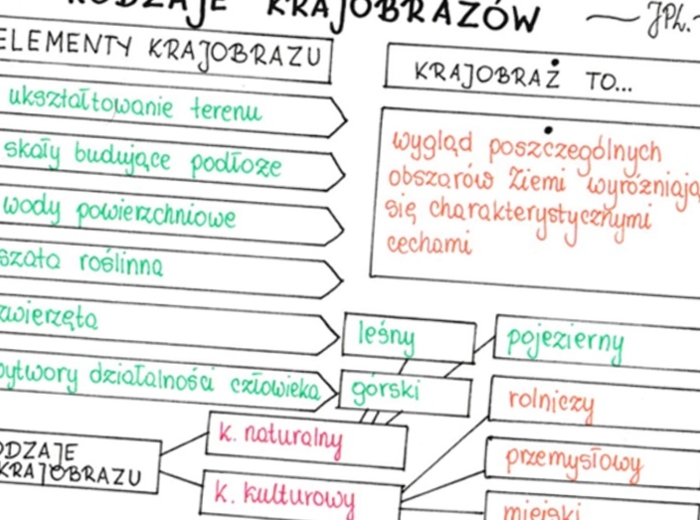 RODZAJE KRAJOBRAZÓW
ELEMENTY KRAJOBRAZU
ukształtowanie terenu
skały budujące podłoże
wody powierzchniowe
szata roślinna
zwierzęta
wytwory działalności człowieka
KRAJOBRAZ TO...
wygląd poszczególnych
obszarów Ziemi wyróżniają
się charakterystycznymi
cechami
leśny
pojezierny
górski
rolniczy
k. naturalny
przemysłowy
RODZAJE
KRAJOBRAZU
k. kulturowy
miejski